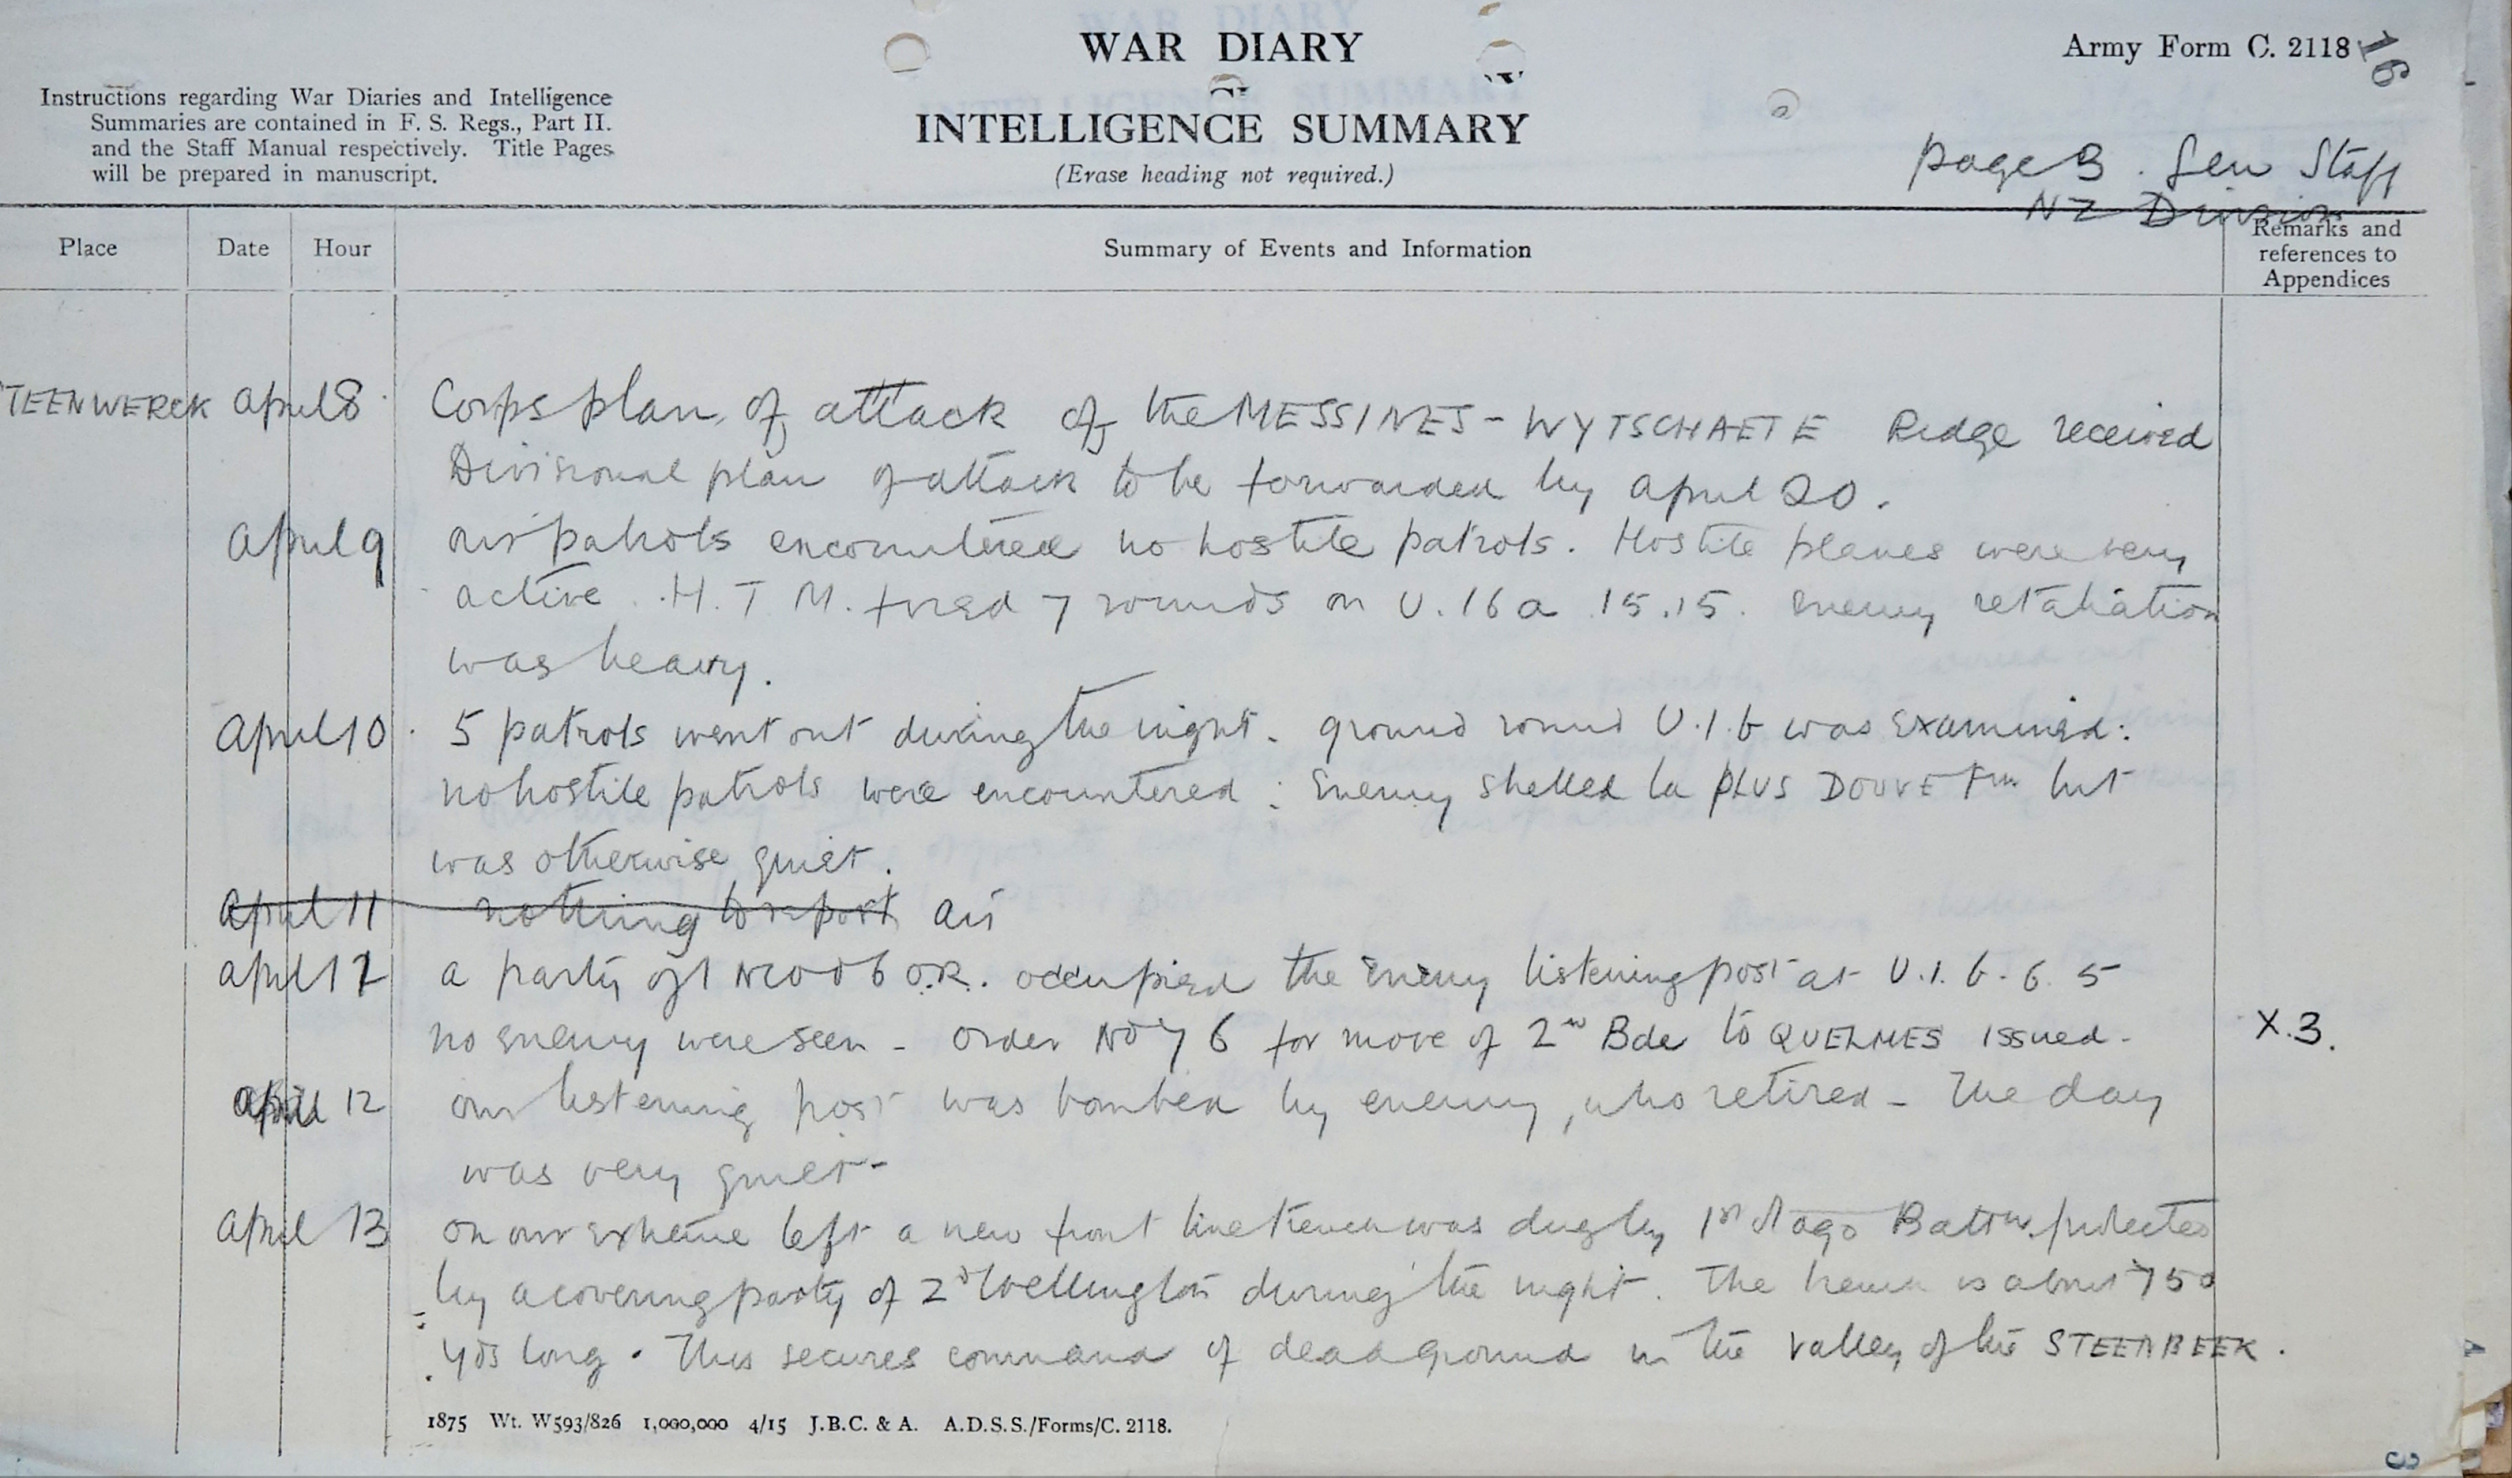 WAR DIARY
INTELLIGENCE SUMMARY
(Erase heading not required.)
Army Form C. 2118
16
Instructions regarding War Diaries and Intelligence
Summaries are contained in F. S. Regs., Part II.
and the Staff Manual respectively. Title Pages
will be prepared in manuscript.
page 3. Gen Staff
NZ Division
Place Date Hour Summary of Events and Information Remarks and
references to
Appendices
TEENWERCK April 8 Corps plan of attack of the MESSINES - WYTSCHAETE Ridge received
Divisional plan of attack to be forwarded by April 20.
April 9 our patrols encountered no hostile patrols. Hostile planes were very
active. H.T.M. fired 7 rounds on U.16a 15.15. Enemy retaliation
was heavy.
April 10 5 patrols went out during the night. ground round U.1.b was examined:
no hostile patrols were encountered: Enemy shelled la PLUS DOUVE Fm but
was otherwise quiet.
April 11 nothing to report
April 12 a party of 1 NCO & 6 O.R. occupied the enemy listening post at U.1.b.6.5
no enemy were seen - Order No 76 for move of 2nd Bde to QUELMES issued - X.3.
April 12 our listening post was bombed by enemy, who retired - The day
was very quiet -
April 13 on our extreme left a new front line trench was dug by 1st Battn. protected
by a covering party of 2d Wellington during the night. The trench is about 750
yds long. This secures command of dead ground in the valley of the STEENBEEK.
1875 Wt. W593/826 1,000,000 4/15 J.B.C. & A. A.D.S.S./Forms/C. 2118.